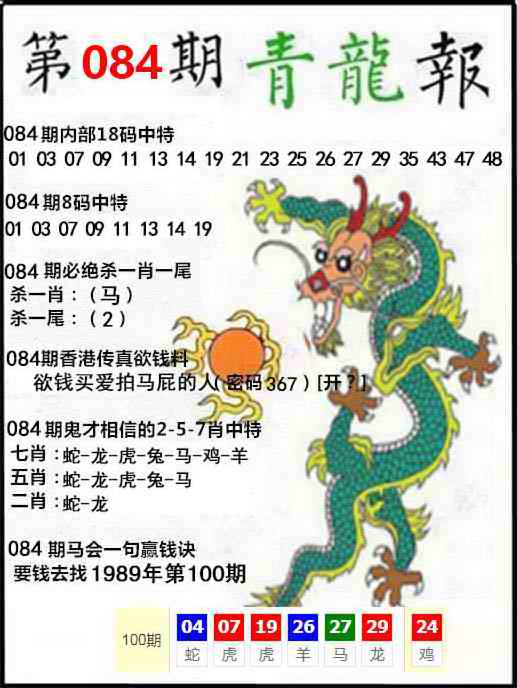 第084期青龍報
084期内部18码中特
01 03 07 09 11 13 14 19 21 23 25 26 27 29 35 43 47 48
084期8码中特
01 03 07 09 11 13 14 19
084 期必绝杀一肖一尾
杀一肖：（马）
杀一尾：（2）
084期香港传真欲钱料
欲钱买爱拍马屁的人( 密码367 ) [开？]
084期鬼才相信的2-5-7肖中特
七肖：蛇-龙-虎-兔-马-鸡-羊
五肖：蛇-龙-虎-兔-马
二肖：蛇-龙
084 期马会一句赢钱诀
要钱去找1989年第100期
100期 04 07 19 26 27 29 24
蛇 虎 虎 羊 马 龙 鸡